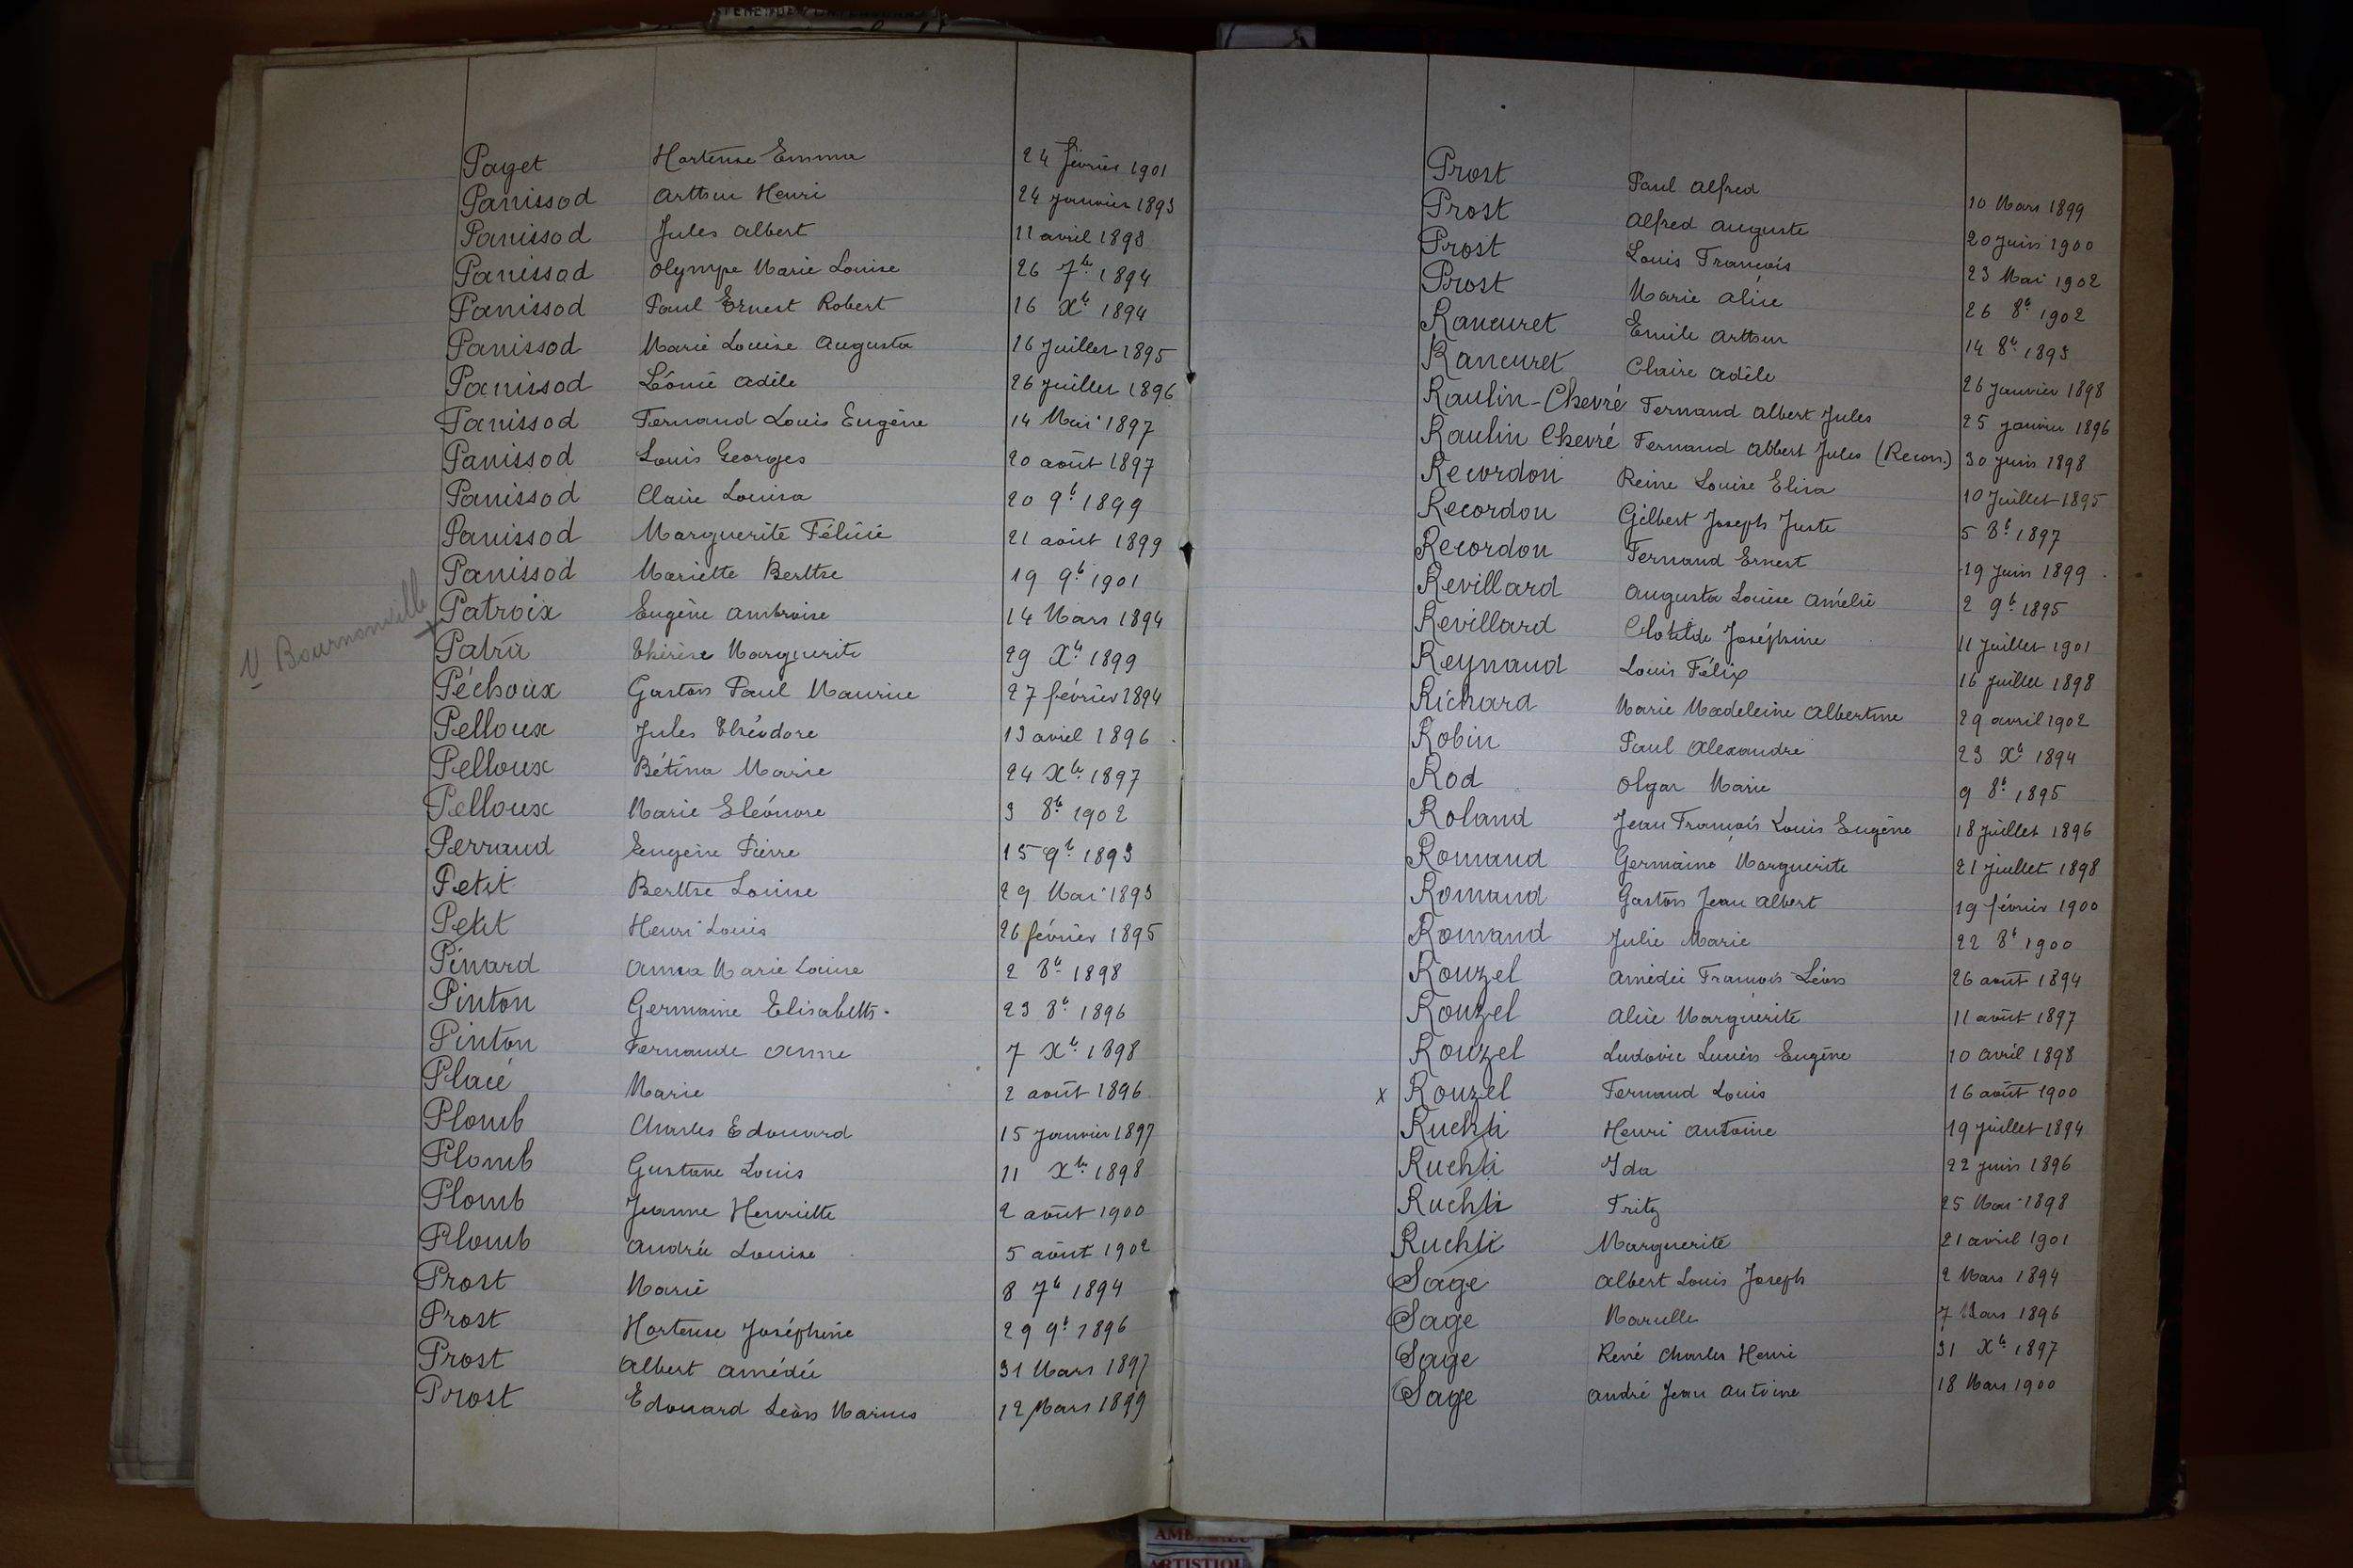 Paget Hortense Emma 24 février 1901
Panissod Arthur Henri 24 janvier 1893
Panissod Jules Albert 11 avril 1893
Panissod Olympe Marie Louise 26 7bre 1894
Panissod Paul Ernest Robert 16 Xbre 1894
Panissod Marie Louise Augusta 16 Juillet 1895
Panissod Léonie Adèle 26 Juillet 1896
Panissod Fernand Louis Eugène 14 Mai 1897
Panissod Louis Georges 20 août 1897
Panissod Claire Louisa 20 9b 1899
Panissod Marguerite Félicie 21 août 1899
Panissod Mariette Berthe 19 9b 1901
V Bournonville
Patroix Eugène Ambroise 14 Mars 1894
Patru Thérèse Marguerite 29 Xbre 1899
Péchoux Gaston Paul Maurice 27 février 1894
Pelloux Jules Théodore 13 avril 1896
Pelloux Bétina Marie 24 Xbre 1897
Pelloux Marie Eléonore 3 8b 1902
Perraud Eugène Pierre 15 9b 1893
Petit Berthe Louise 29 Mai 1893
Petit Henri Louis 26 février 1895
Pinard Anna Marie Louise 2 8b 1898
Pinton Germaine Elisabeth 23 8b 1896
Pinton Fernande Anne 7 Xbre 1898
Placé Marie 2 août 1896
Plomb Charles Edouard 15 Janvier 1897
Plomb Gustave Louis 11 Xbre 1898
Plomb Jeanne Henriette 2 août 1900
Plomb Andrée Louise 5 août 1902
Prost Marie 8 7b 1894
Prost Hortense Joséphine 29 9b 1896
Prost Albert Amédée 31 Mars 1897
Prost Edouard Léon Marius 12 Mars 1899
Prost Paul Alfred 10 Mars 1899
Prost Alfred Auguste 20 Juin 1900
Prost Louis François 23 Mai 1902
Prost Marie Alice 26 8b 1902
Rancuret Emile Arthur 14 8b 1893
Rancuret Claire Adèle 26 Janvier 1898
Raulin-Chevré Fernand Albert Jules 25 janvier 1896
Raulin Chevré Fernand Albert Jules (Recon.) 30 Juin 1898
Recordon Reine Louise Elisa 10 Juillet 1895
Recordon Gilbert Joseph Juste 5 8b 1897
Recordon Fernand Ernest 19 Juin 1899
Revillard Augusta Louise Amélie 2 9b 1895
Revillard Clotilde Joséphine 11 Juillet 1901
Reynaud Louis Félix 16 Juillet 1898
Richard Marie Madeleine Albertine 29 avril 1902
Robin Paul Alexandre 23 Xb 1894
Rod Olgar Marie 9 8b 1895
Roland Jean François Louis Eugène 18 Juillet 1896
Romand Germaine Marguerite 21 juillet 1898
Romand Gaston Jean Albert 19 février 1900
Romand Julie Marie 22 8b 1900
Rouzel Amédée François Léon 26 août 1894
Rouzel Alice Marguerite 11 août 1897
Rouzel Ludovic Lucien Eugène 10 avril 1898
x Rouzel Fernand Louis 16 août 1900
Ruchti Henri Antoine 19 Juillet 1894
Ruchti Ida 22 Juin 1896
Ruchti Fritz 25 Mai 1898
Ruchti Marguerite 21 avril 1901
Sage Albert Louis Joseph 2 Mars 1894
Sage Marcelle 7 Mars 1896
Sage René Charles Henri 31 Xb 1897
Sage André Jean Antoine 18 Mars 1900